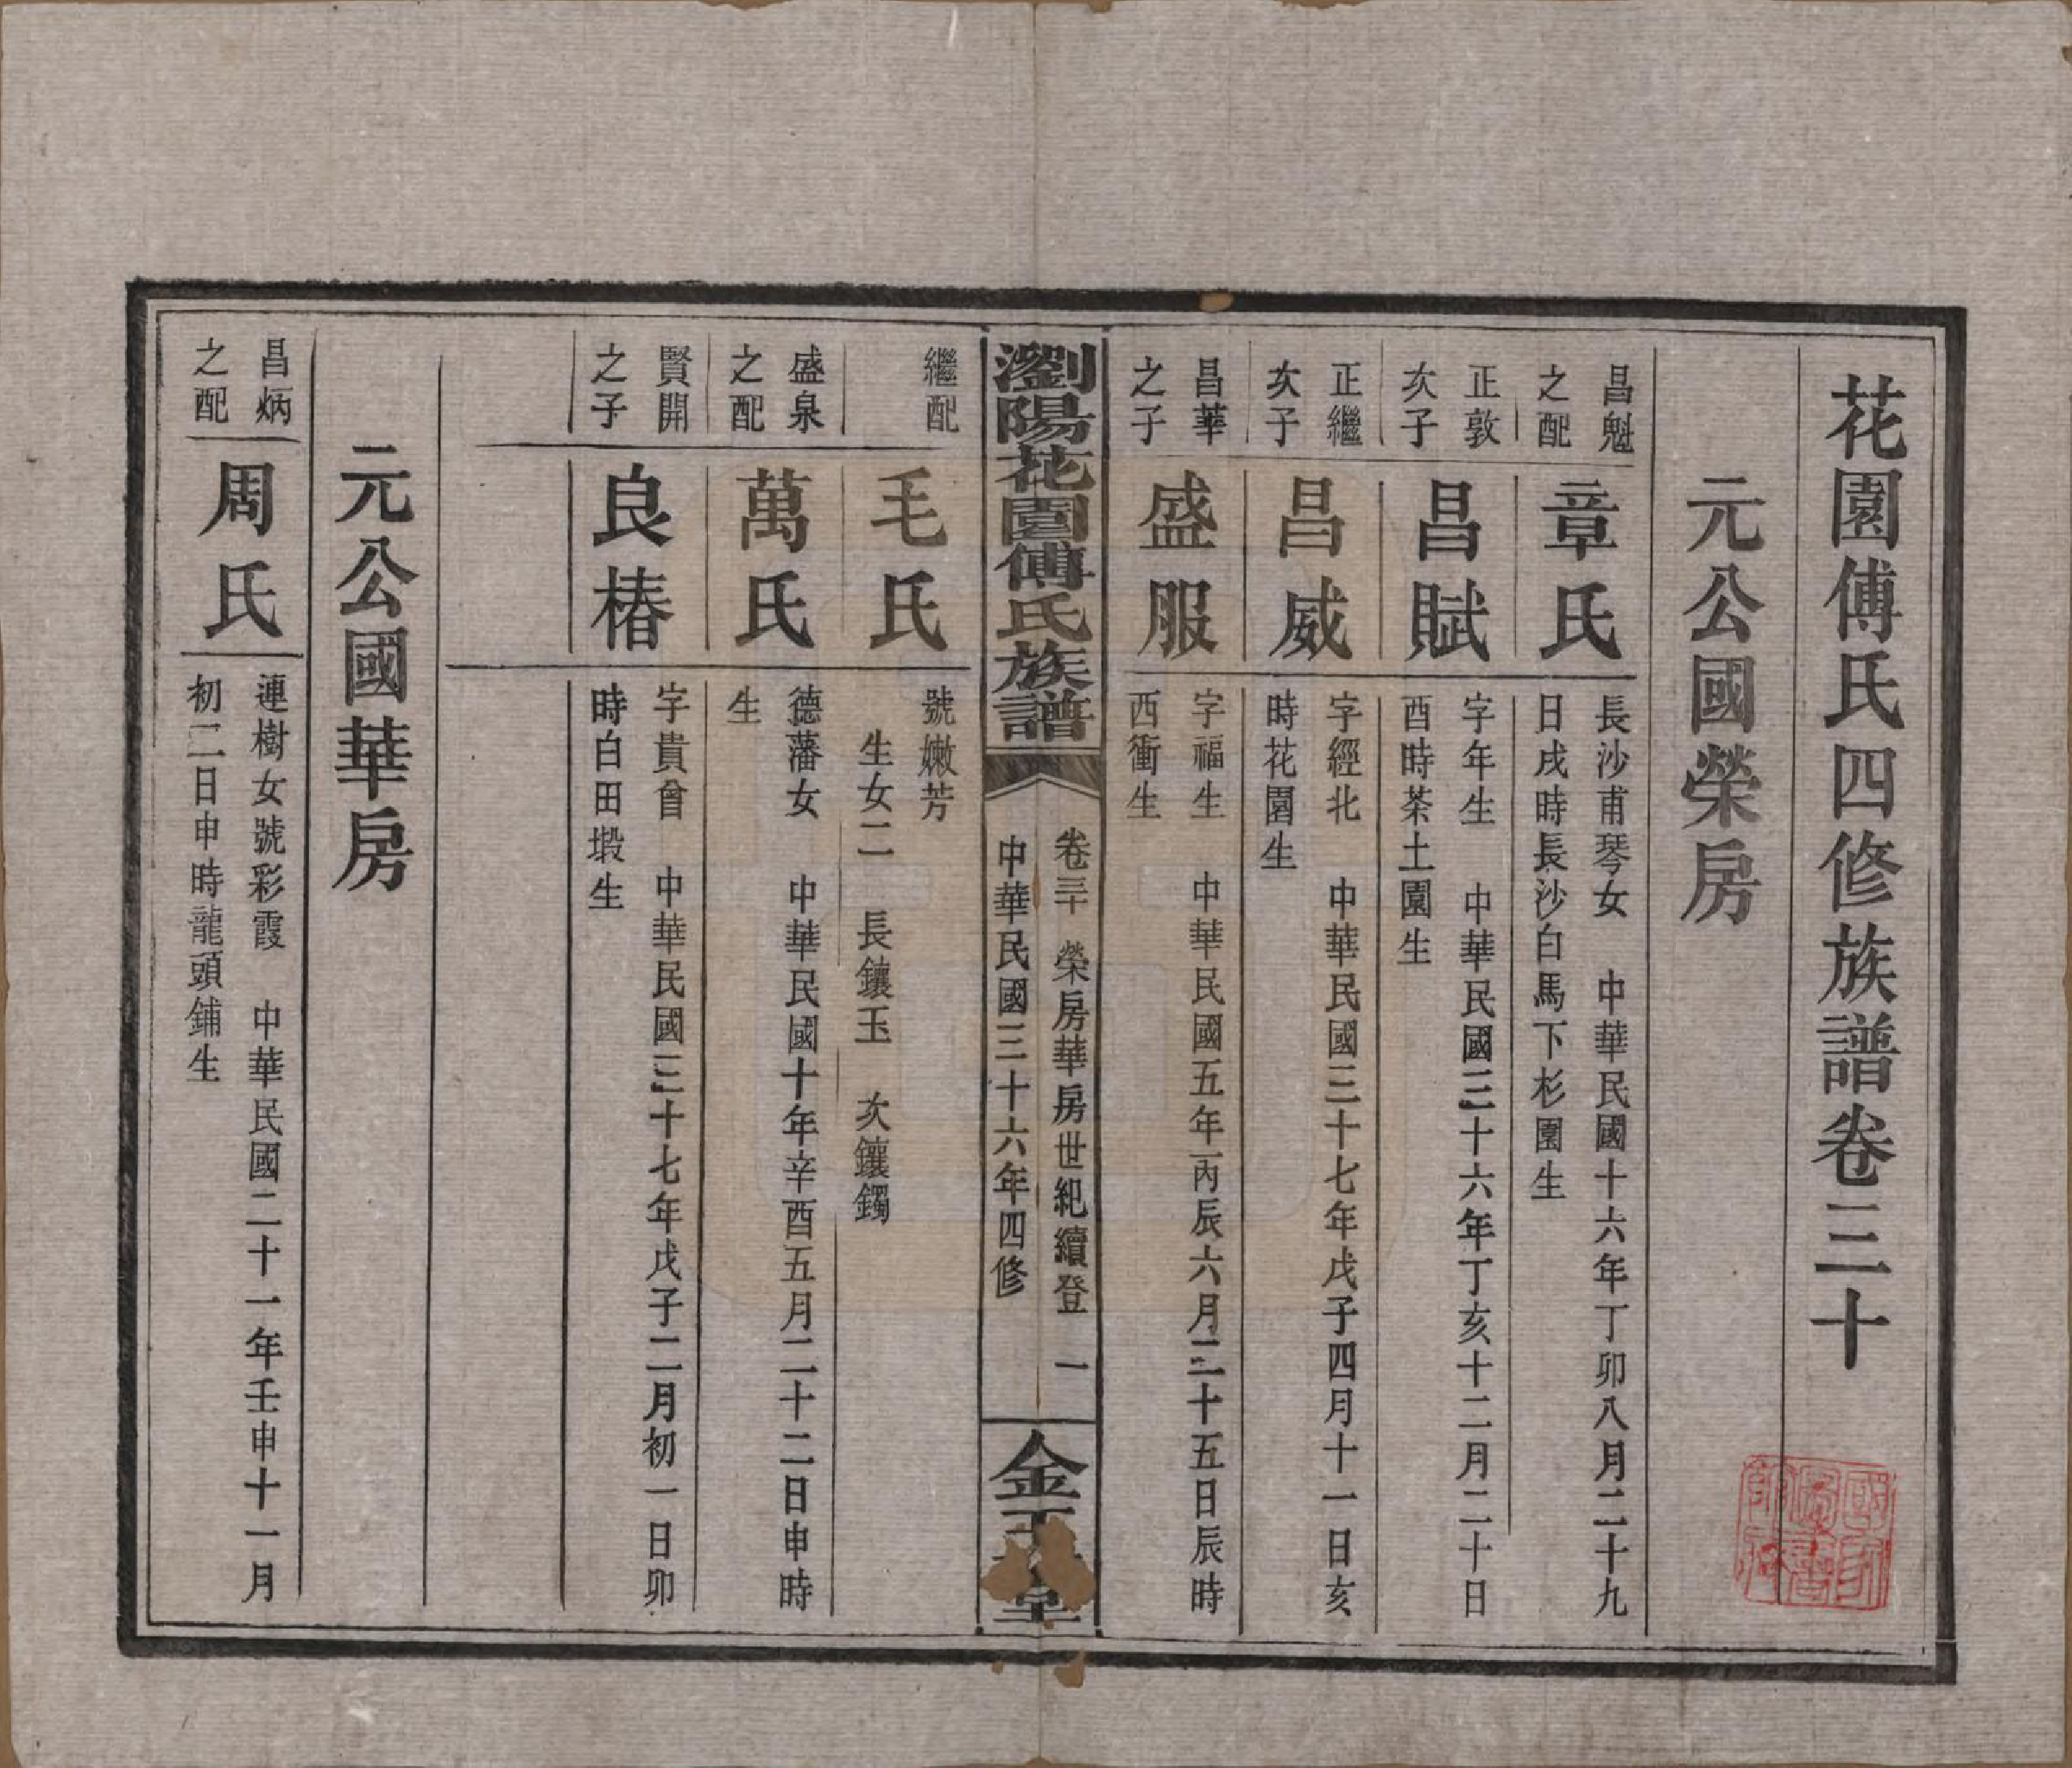 花園傅氏四修族譜卷三十
元公國榮房
昌魁
之配
章氏
長沙甫琴女　中華民國十六年丁卯八月二十九
日戌時長沙白馬下杉園生
正敦
次子
昌賦
字年生　中華民國三十六年丁亥十二月二十日
酉時茶土園生
正繼
次子
昌威
字經北　中華民國三十七年戊子四月十一日亥
時花園生
昌華
之子
盛服
字福生　中華民國五年丙辰六月二十五日辰時
西衝生
瀏陽花園傅氏族譜
卷三十　榮房華房世紀續登　一
中華民國三十六年四修
金 堂
繼配
毛氏
號嫩芳
生女二　長鑲玉　次鑲鐲
盛泉
之配
萬氏
德藩女　中華民國十年辛酉五月二十二日申時
生
賢開
之子
良椿
字貴曾　中華民國三十七年戊子二月初一日卯
時白田塅生
元公國華房
昌炳
之配
周氏
連樹女號彩霞　中華民國二十一年壬申十一月
初二日申時龍頭鋪生